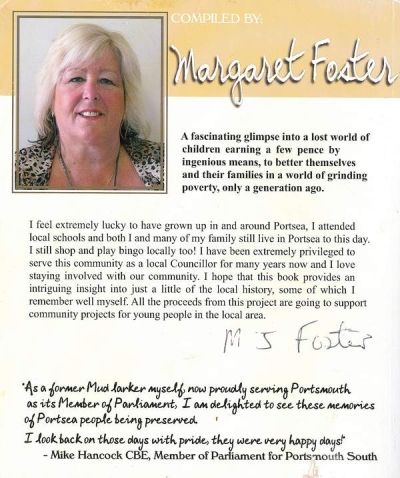 COMPILED BY:
Margaret Foster
A fascinating glimpse into a lost world of
children earning a few pence by
ingenious means, to better themselves
and their families in a world of grinding
poverty, only a generation ago.
I feel extremely lucky to have grown up in and around Portsea, I attended
local schools and both I and many of my family still live in Portsea to this day.
I still shop and play bingo locally too! I have been extremely privileged to
serve this community as a local Councillor for many years now and I love
staying involved with our community. I hope that this book provides an
intriguing insight into just a little of the local history, some of which I
remember well myself. All the proceeds from this project are going to support
community projects for young people in the local area.
M J Foster
"As a former Mud larker myself, now proudly serving Portsmouth
as its Member of Parliament, I am delighted to see these memories
of Portsea people being preserved.
I look back on those days with pride, they were very happy days!"
- Mike Hancock CBE, Member of Parliament for Portsmouth South